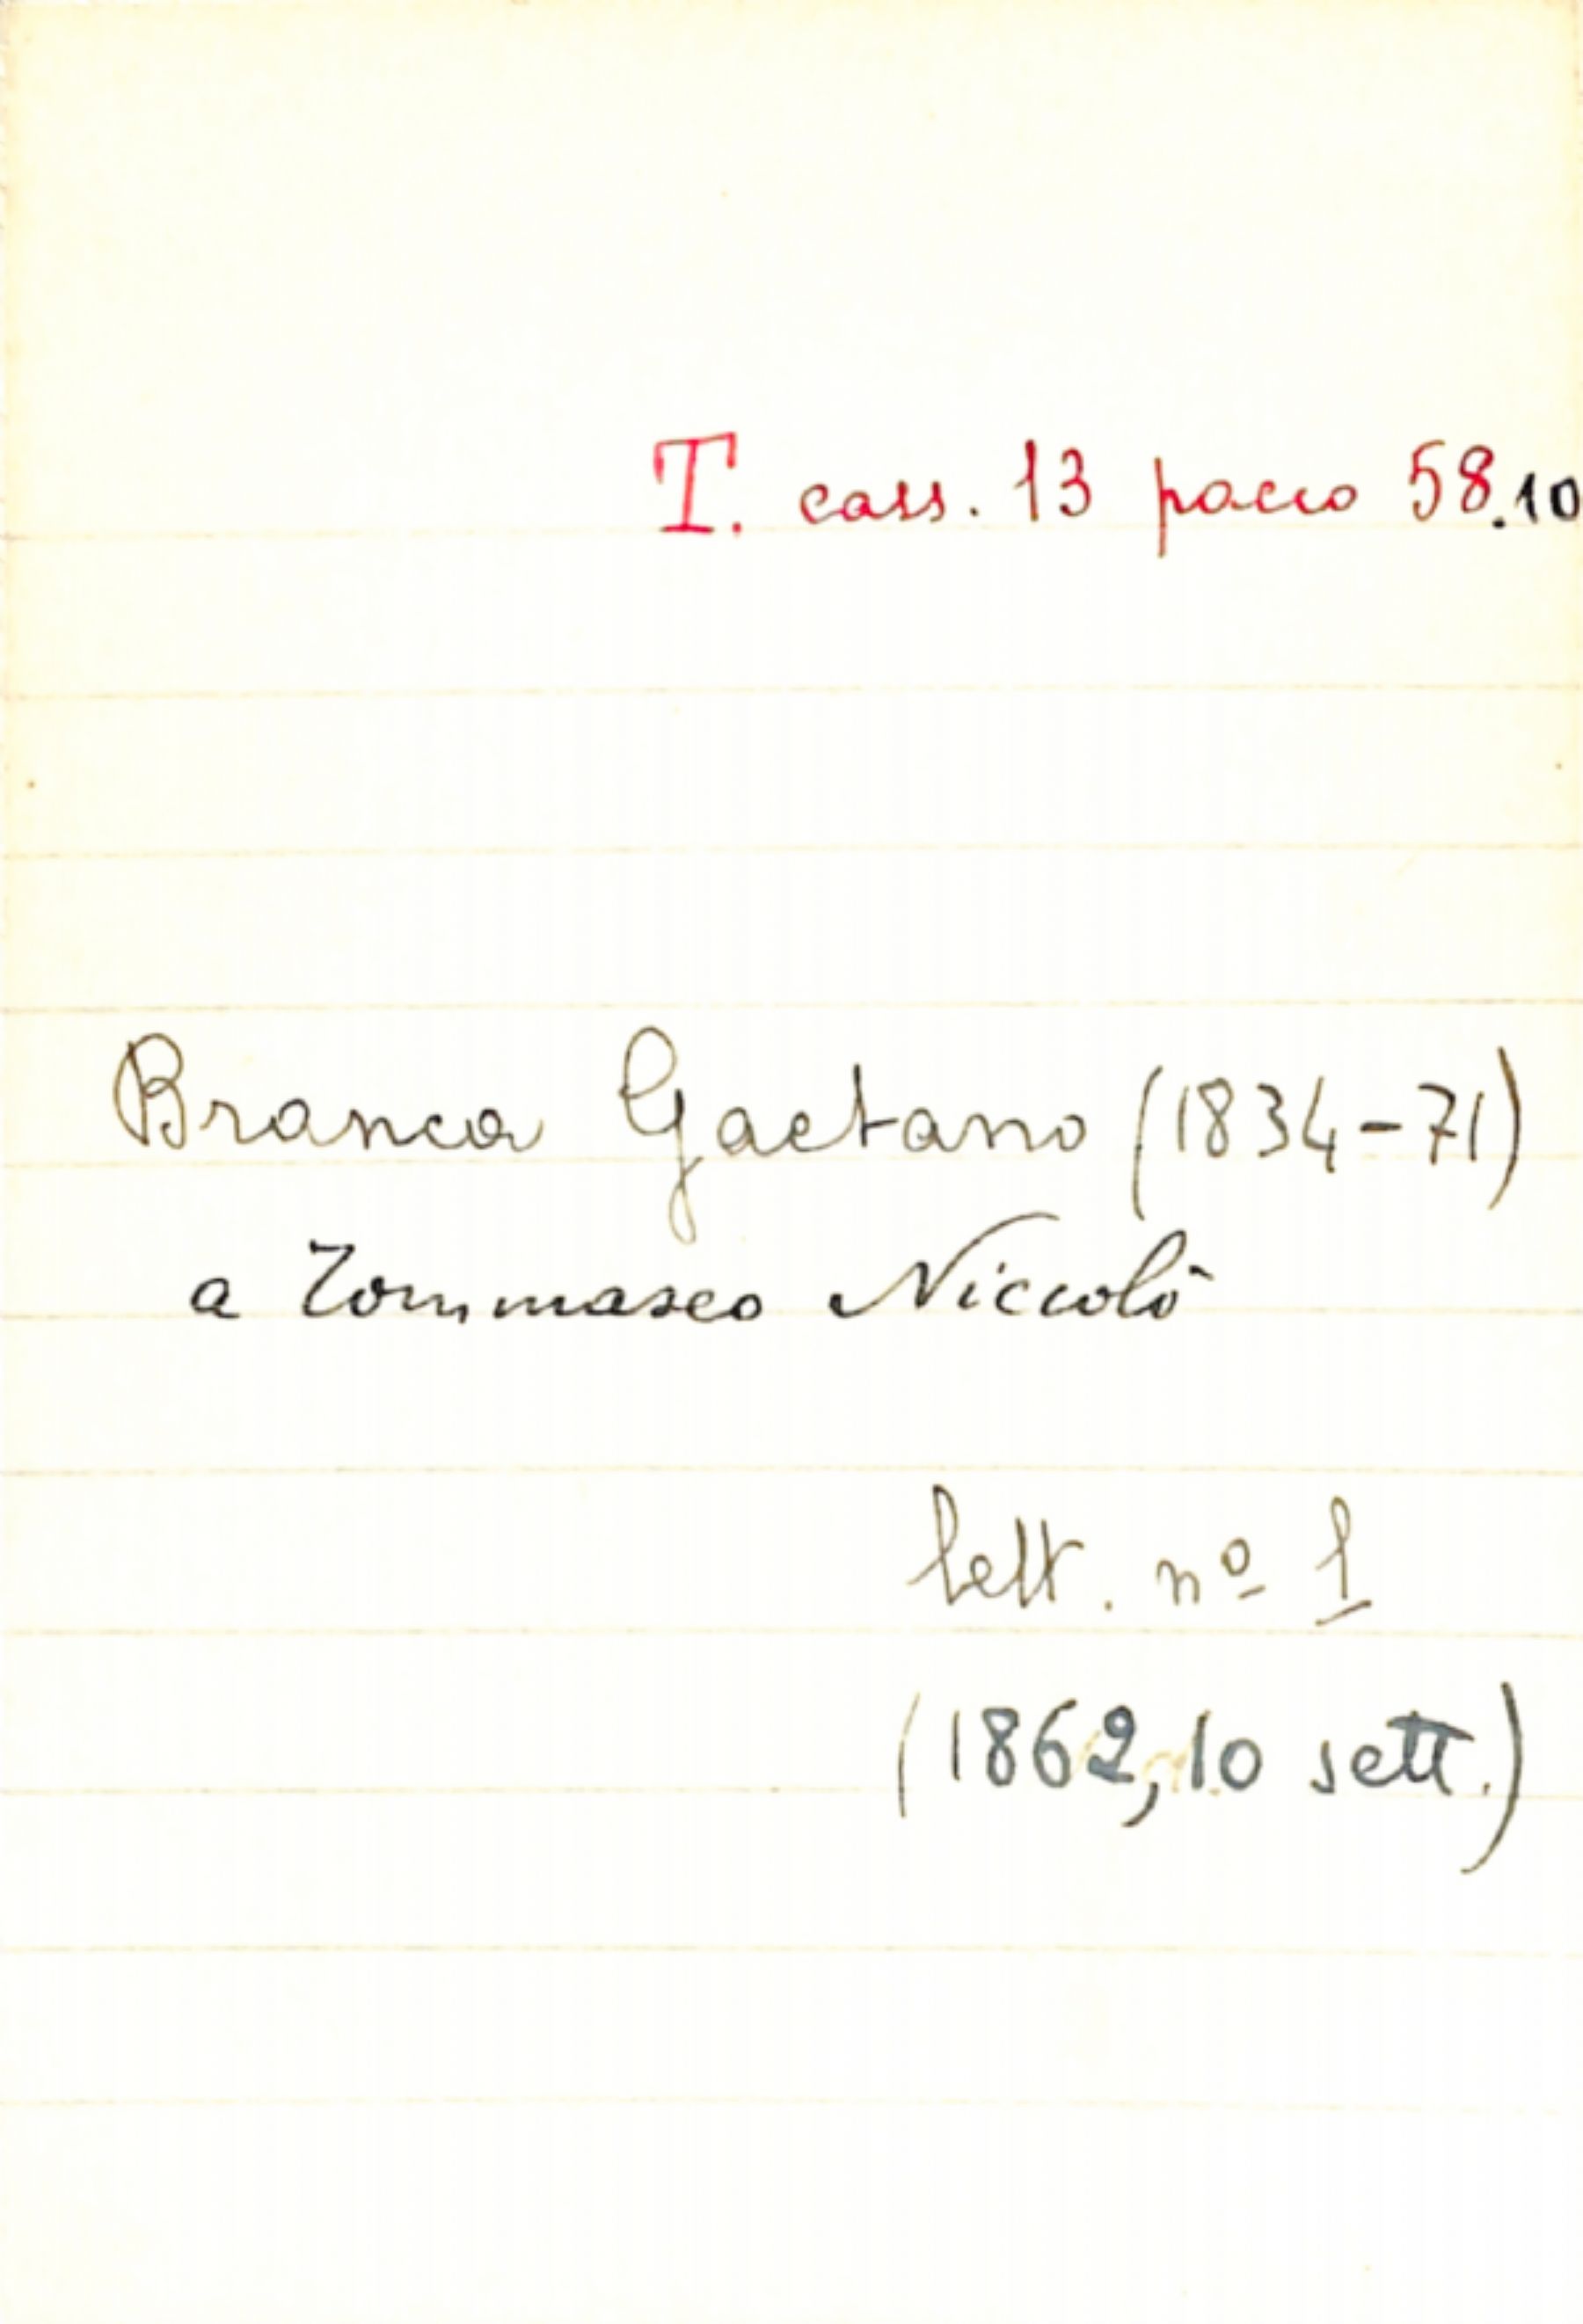 T. cass. 13 pacco 58.10
Branca Gaetano (1834-71)
a Tommaseo Niccolò
lett. nº 1
(1862, 10 sett.)